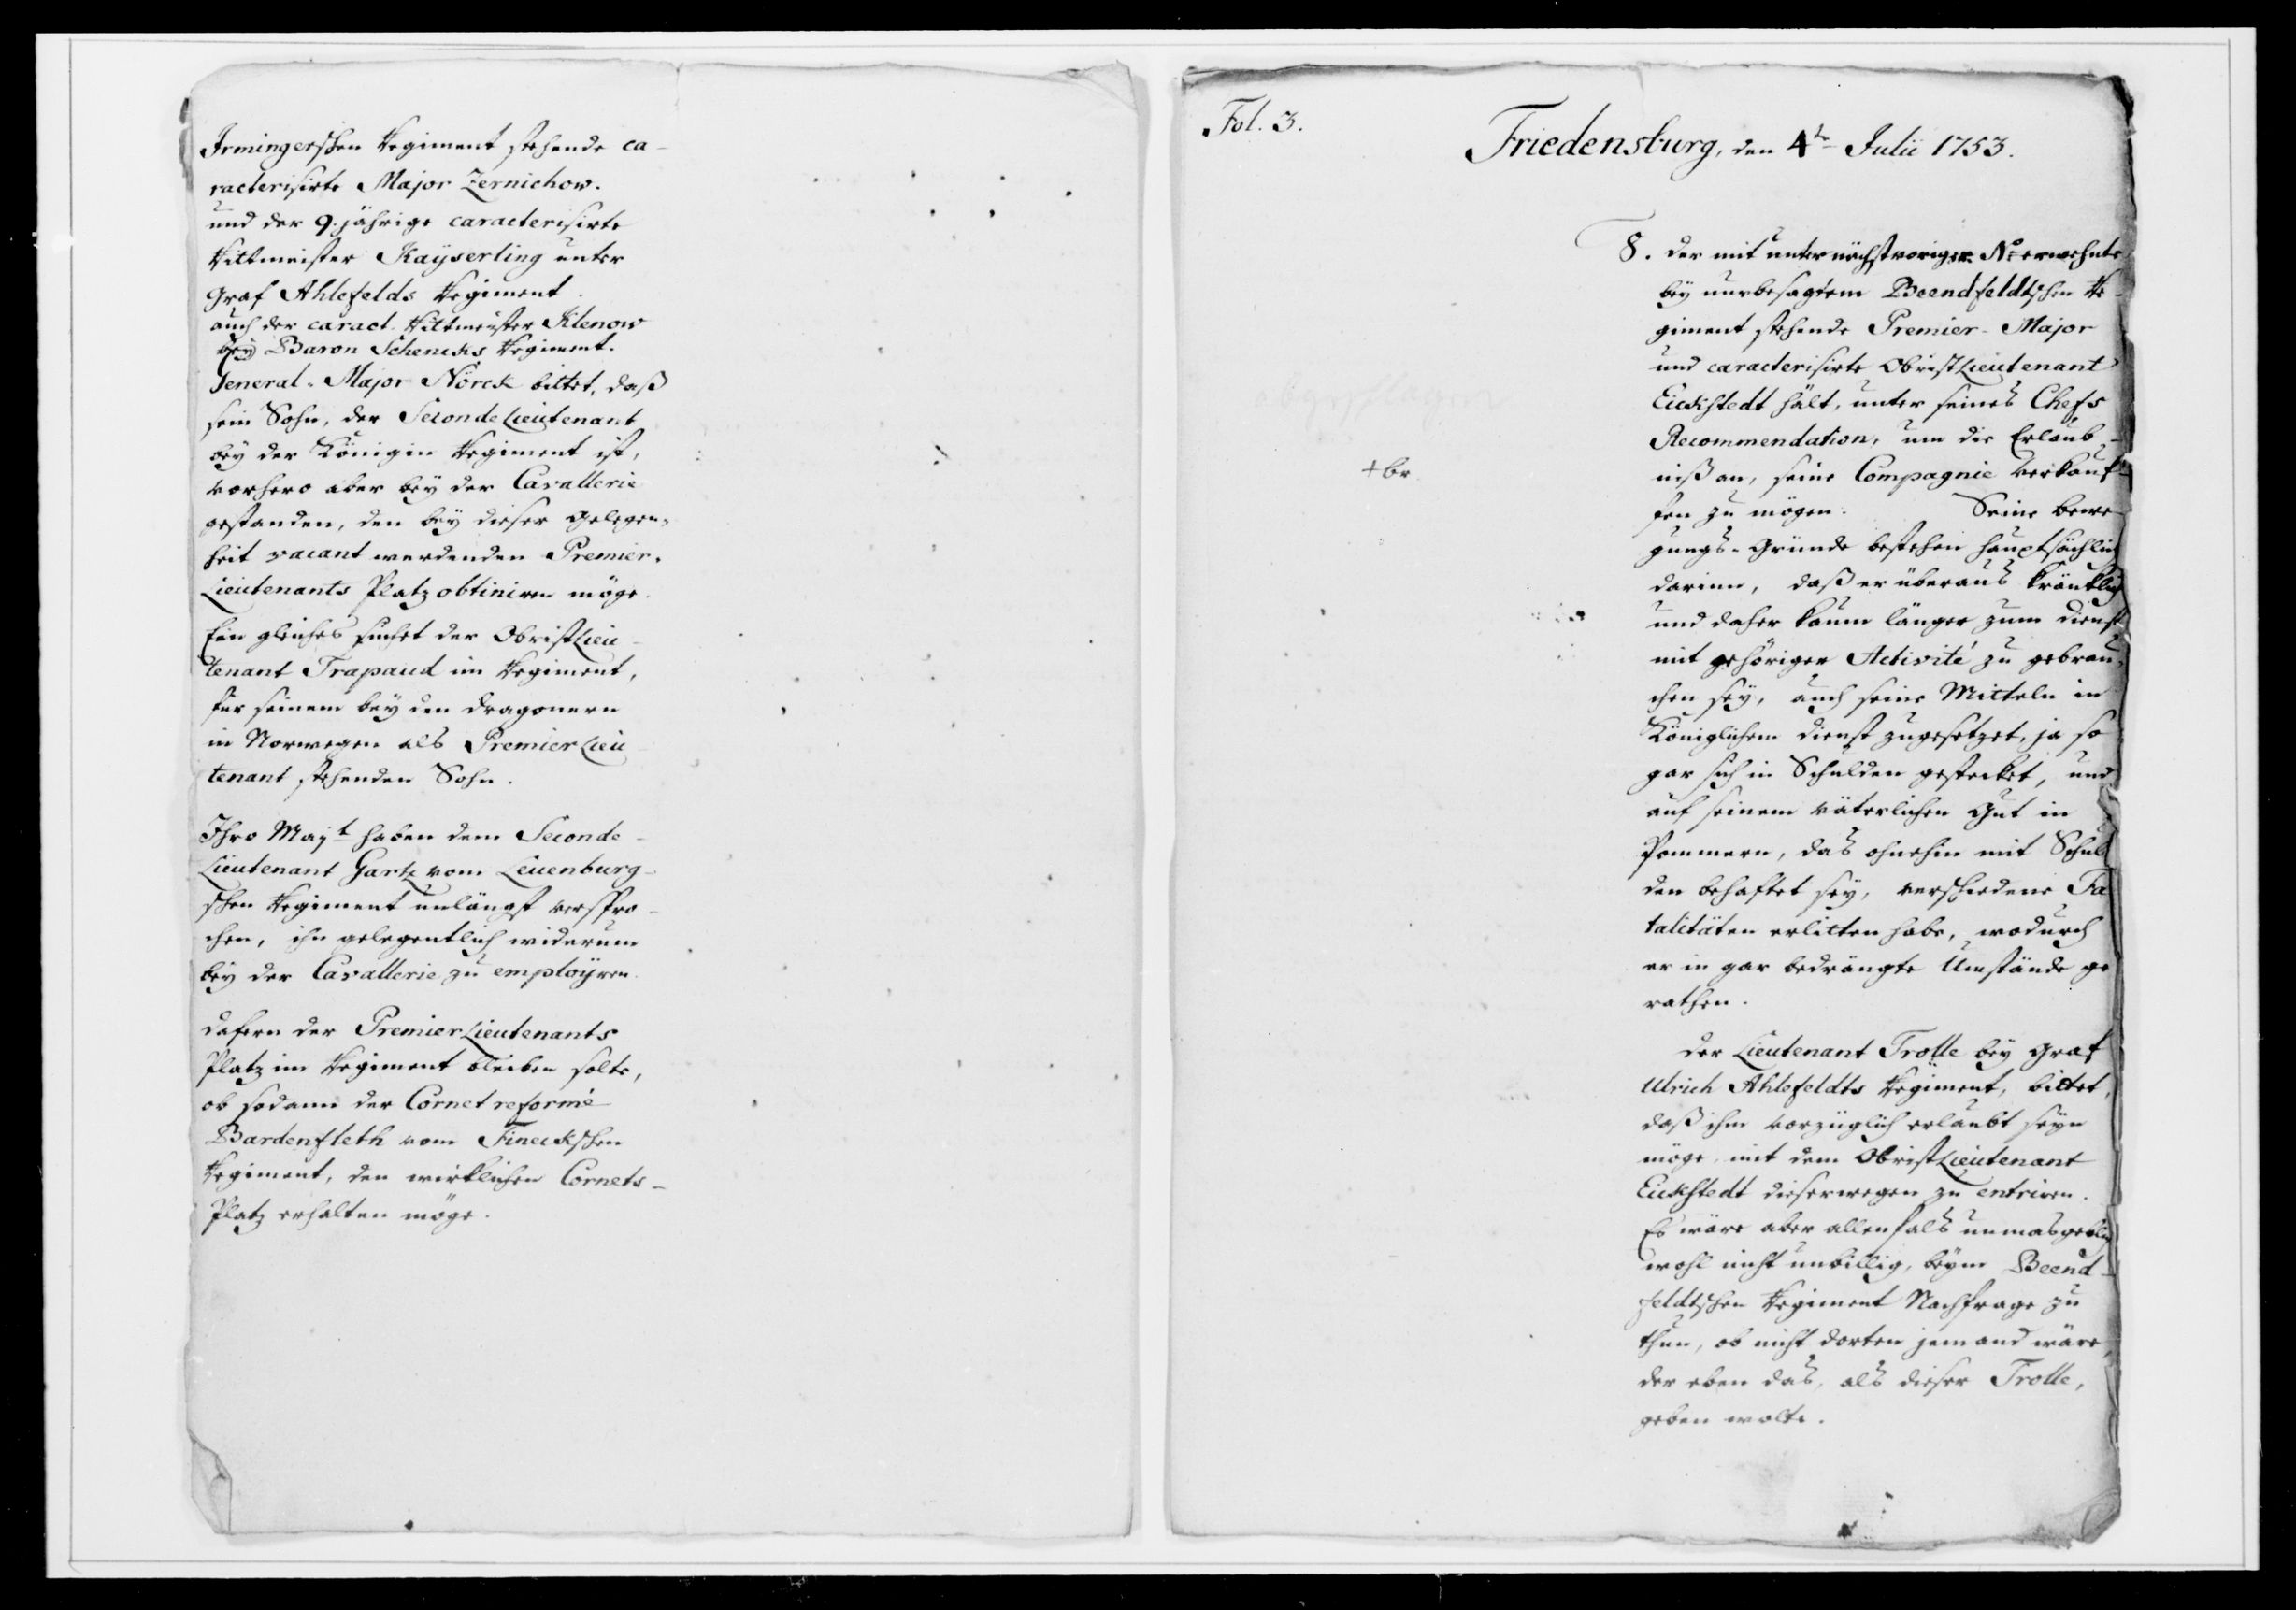 Irmingerschen Regiment stehende ca-
racterisirte Major Zernichow.
und der 9. jährige caracterisirte
Rittmeister Kayserling unter
Graf Ahlefelds Regiment.
auch der caract. Rittmeister Klenow
bey Baron Schencks Regiment.
General-Major Nörck bittet, daß
sein Sohn, der Seconde Lieutenant
bey der Königin Regiment ist,
vorhero aber bey der Cavallerie
gestanden, den bey dieser Gelegen-
heit vacant werdenden Premier-
Lieutenants Platz obtiniren möge.
Ein gleiches suchet der Obrist Lieu-
tenant Trapaud im Regiment,
für seinem bey den Dragonern
in Norwegen als Premier Lieu-
tenant stehenden Sohn.
Ihro Majt haben dem Seconde-
Lieutenant Gartz vom Leuenburg-
schen Regiment unlängst verspro-
chen, ihn gelegentlich widerum
bey der Cavallerie zu employren.
dafern der Premier Lieutenants
Platz im Regiment bleiben solte,
ob sodann der Cornet reformé
Bardenfleth vom Fineckschen
Regiment, den wirklichen Cornets-
Platz erhalten möge.
Fol. 3.
Friedensburg, den 4te Julii 1753.
8. der mit unter nächstvoriger No erwehnte
bey nurbesagtem Beendfeldtschen Re-
giment stehende Premier-Major
und caracterisirte Obrist Lieutenant
Eickstedt hält, unter seines Chefs
Recommendation, um die Erlaub-
niß an, seine Compagnie verkauf-
fen zu mögen. Seine bewe-
gungs-Gründe bestehen hauptsächlich
darinn, daß er überaus kränklich
und daher kaum länger zum dienst
mit gehöriger Activité zu gebrau-
chen sey, auch seine Mitteln in
Königlichem dienst zugesetzet, ja so
gar sich in Schulden gestecket, und
auf seinem väterlichen Gut in
Pommern, das ohnehin mit Schul-
den behaftet sey, verschiedene Fa-
talitäten erlitten habe, wodurch
er in gar bedrängte Umstände ge-
rathen.
abgeschlagen
+br.
Der Lieutenant Trolle bey Graf
Ulrich Ahlefeldts Regiment, bittet,
daß ihm vorzüglich erlaubt seyn
möge, mit dem Obrist Lieutenant
Eickstedt dieserwegen zu entriren.
Es wäre aber allenfals unmasgeblich
wohl nicht unbillig, beym Beend-
feldtschen Regiment Nachfrage zu
thun, ob nicht dorten jemand wäre,
der eben das, als dieser Trolle,
geben wolte.